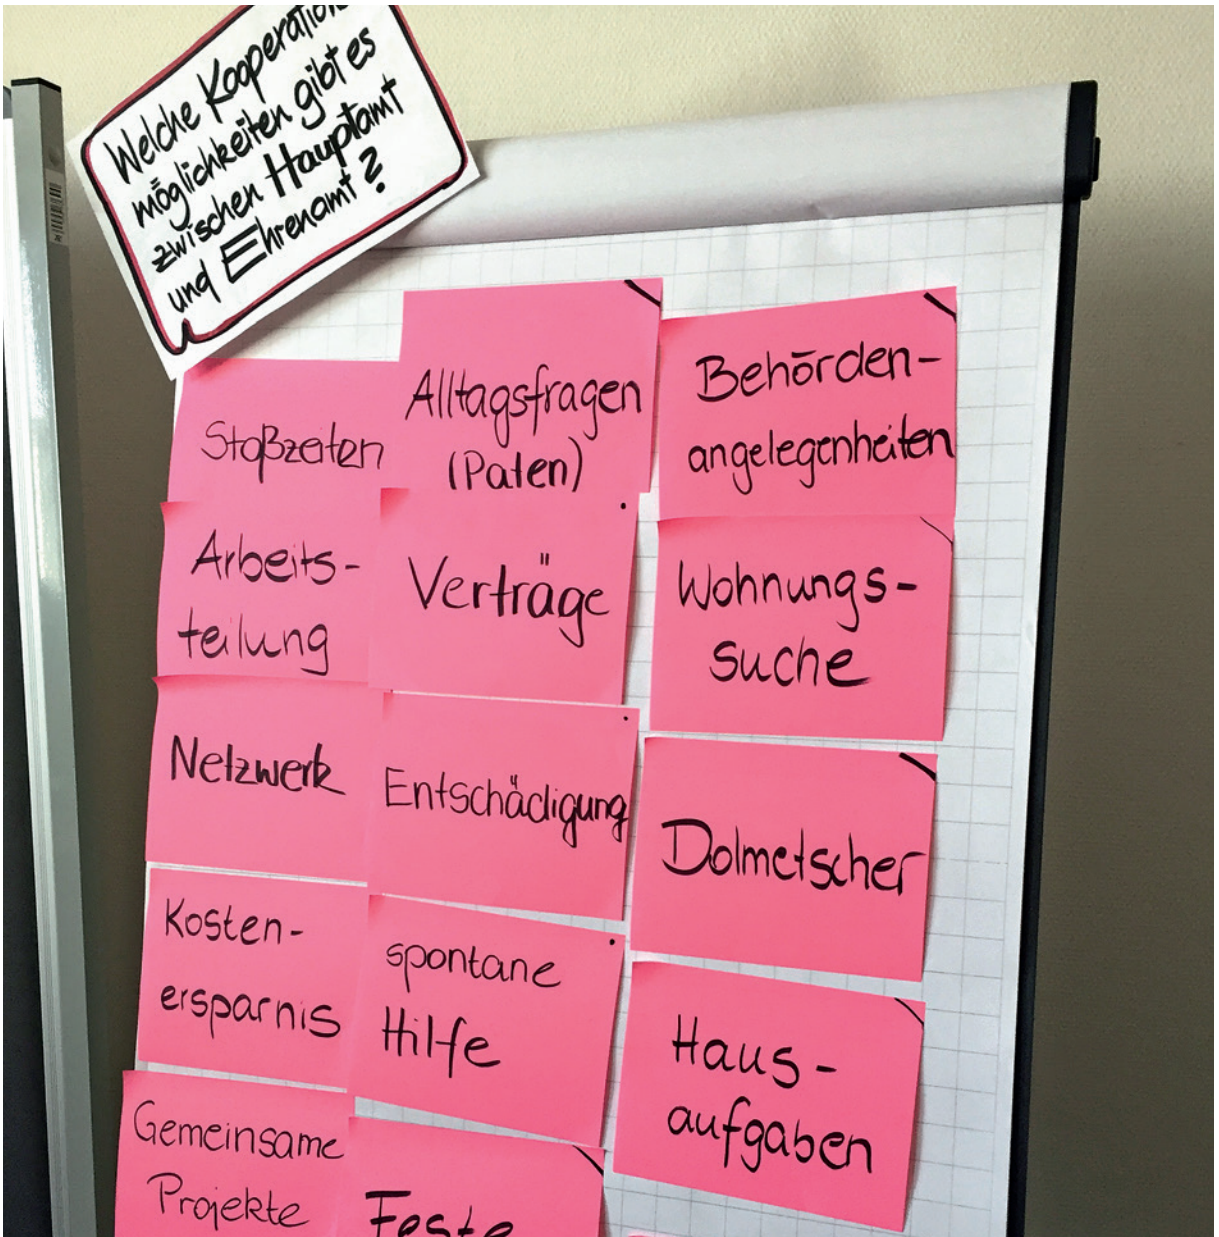 Welche Kooperations
möglichkeiten gibt es
zwischen Hauptamt
und Ehrenamt?
Stoßzeiten
Arbeits-
teilung
Netzwerk
Kosten-
ersparnis
Gemeinsame
Projekte
Alltagsfragen
(Paten)
Verträge
Entschädigung
spontane
Hilfe
Feste
Behörden-
angelegenheiten
Wohnungs-
suche
Dolmetscher
Haus-
aufgaben